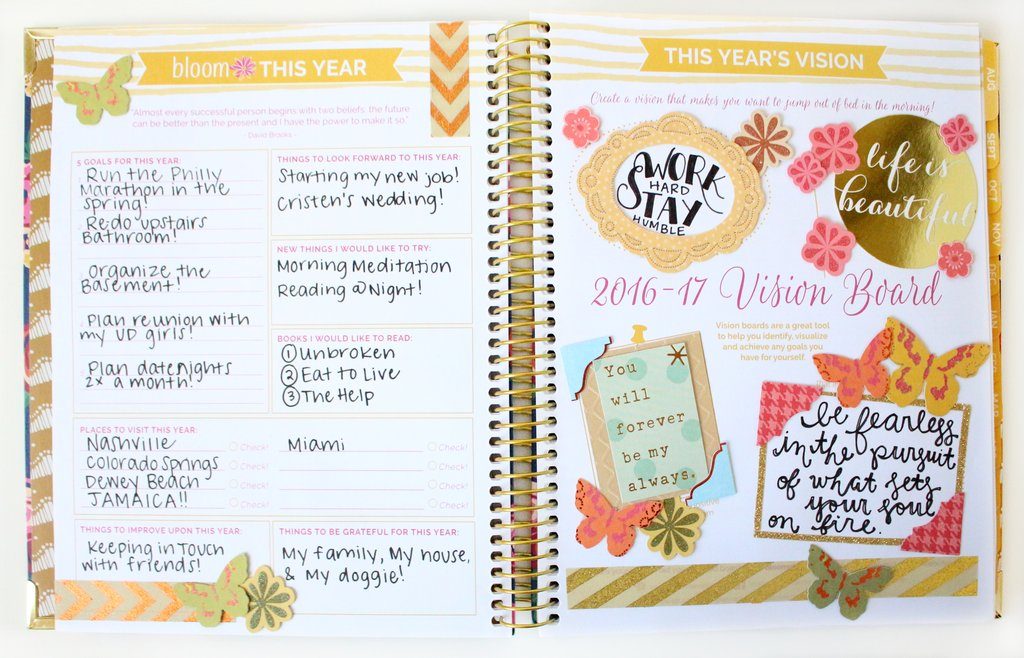 bloom THIS YEAR
"Almost every successful person begins with two beliefs: the future
can be better than the present and I have the power to make it so."
- David Brooks -
5 GOALS FOR THIS YEAR:
Run the Philly
Marathon in the
Spring!
Re-do upstairs
Bathroom!
Organize the
Basement!
Plan reunion with
my UD girls!
Plan date nights
2x a month!
THINGS TO LOOK FORWARD TO THIS YEAR:
Starting my new job!
Cristen's wedding!
NEW THINGS I WOULD LIKE TO TRY:
Morning Meditation
Reading @ Night!
BOOKS I WOULD LIKE TO READ:
① Unbroken
② Eat to Live
③ The Help
PLACES TO VISIT THIS YEAR:
Nashville Check!
Colorado Springs Check!
Dewey Beach Check!
JAMAICA!! Check!
Miami Check!
Check!
Check!
Check!
THINGS TO IMPROVE UPON THIS YEAR:
Keeping in Touch
with friends!
THINGS TO BE GRATEFUL FOR THIS YEAR:
My family, My house,
& My doggie!
THIS YEAR'S VISION
Create a vision that makes you want to jump out of bed in the morning!
WORK
HARD
STAY
HUMBLE
life is
beautiful
2016-17 Vision Board
Vision boards are a great tool
to help you identify, visualize
and achieve any goals you
have for yourself.
You
will
forever
be my
always.
be fearless
in the pursuit
of what sets
your soul
on fire.
AUG
SEPT
OCT
NOV